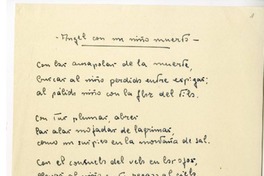 - Angel con un niño muerto -
Con las amapolas de la muerte,
buscas al niño perdido entre espigas;
al pálido niño con la flor del tilo.
Con tus plumas, abres
las alas mojadas de lágrimas,
como un suspiro en la montaña de sal.
Con el consuelo del velo en los ojos,